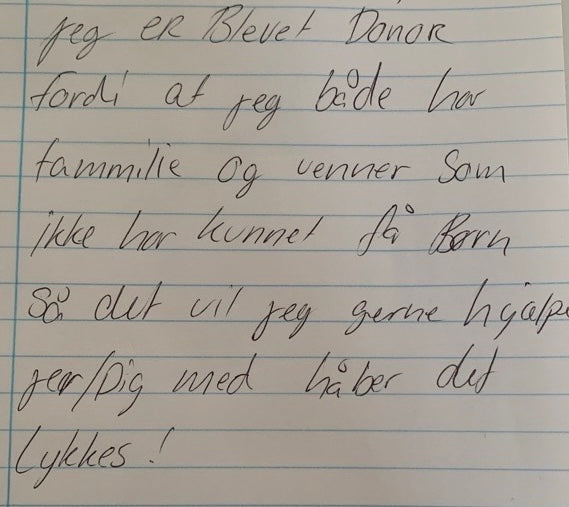 jeg er Blevet Donor
fordi at jeg både har
fammilie og venner som
ikke har kunnet få Børn
Så det vil jeg gerne hjælpe
jer/Dig med håber det
Lykkes!